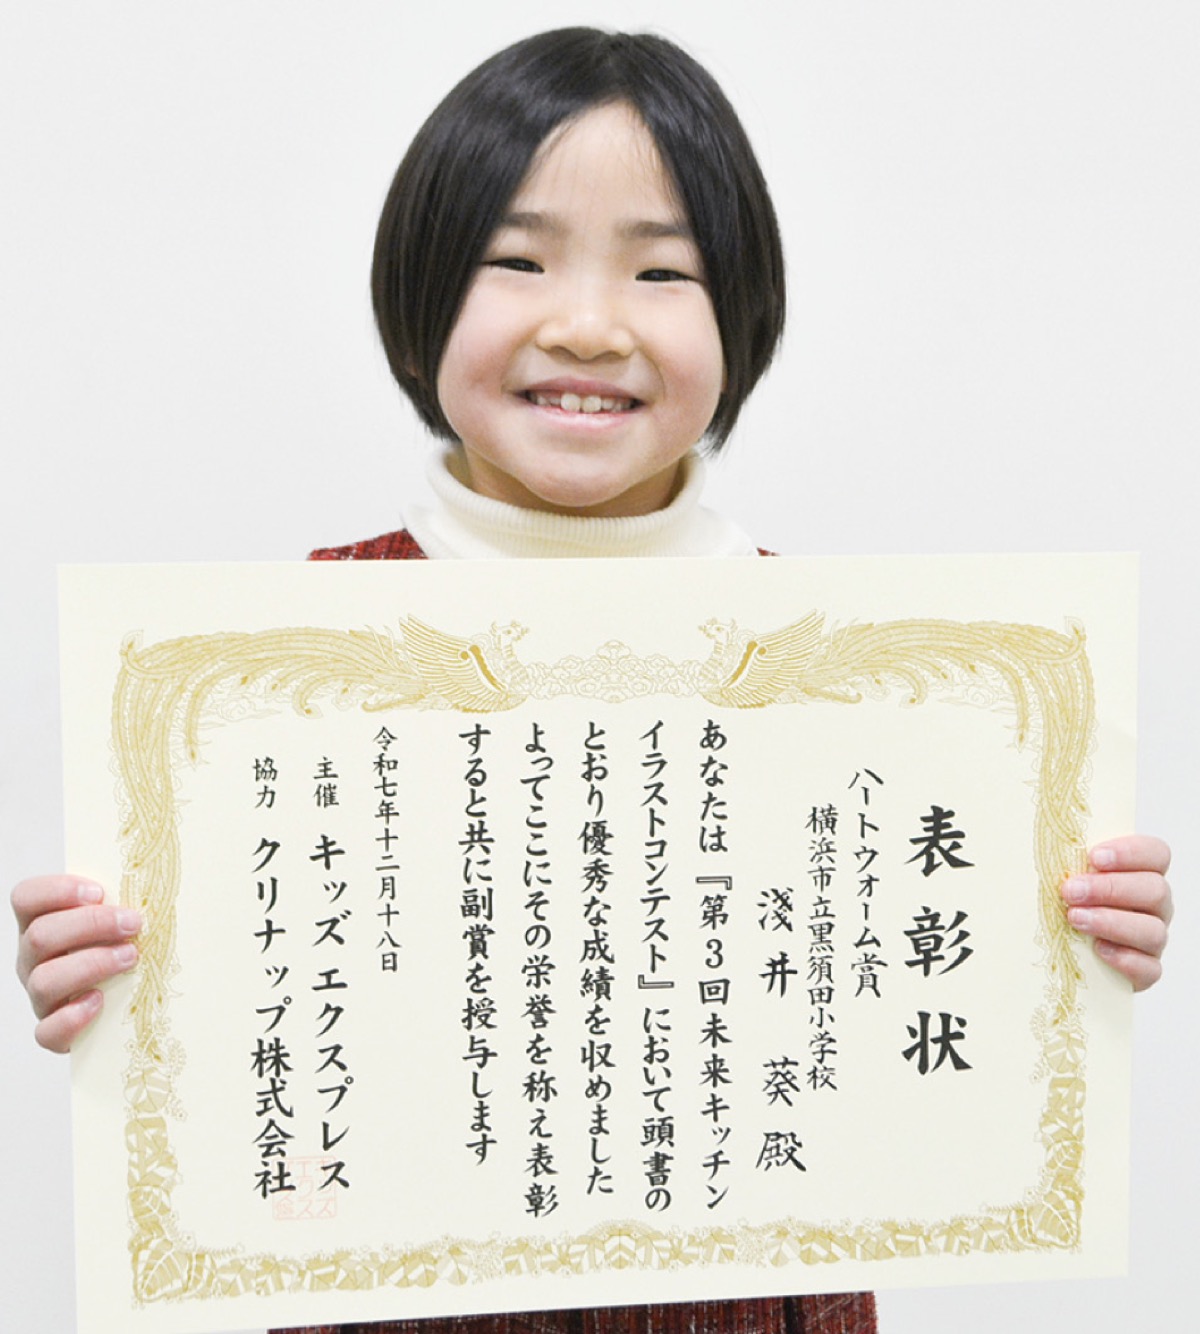 表彰状
ハートウォーム賞
横浜市立黒須田小学校
淺井 葵 殿
あなたは『第3回未来キッチン
イラストコンテスト』において頭書の
とおり優秀な成績を収めました
よってここにその栄誉を称え表彰
すると共に副賞を授与します
令和七年十二月十八日
主催 キッズエクスプレス
協力 クリナップ株式会社